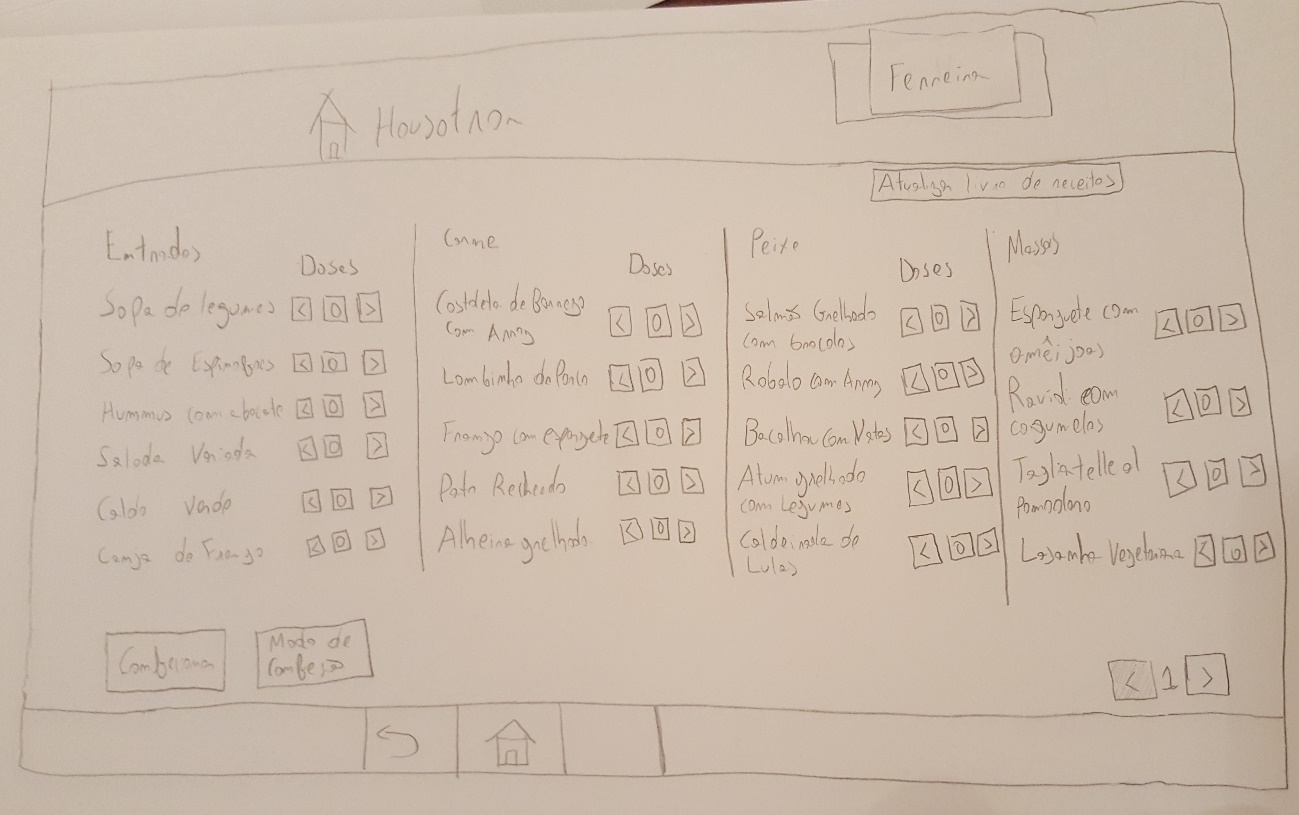 Housotron
Ferreira
Atualizar livro de receitas
Entradas
Doses
Sopa de legumes < 0 >
Sopa de Espinafres < 0 >
Hummus com abacate < 0 >
Salada Variada < 0 >
Caldo Verde < 0 >
Canja de Frango < 0 >
Carne
Doses
Costeleta de Borrego
com Arroz < 0 >
Lombinho de Porco < 0 >
Frango com esparguete < 0 >
Pato Recheado < 0 >
Alheira grelhada < 0 >
Peixe
Doses
Salmão Grelhado
com brocolos < 0 >
Robalo com Arroz < 0 >
Bacalhau com Natas < 0 >
Atum grelhado
com Legumes < 0 >
Caldeirada de
Lulas < 0 >
Massas
Esparguete com
amêijoas < 0 >
Ravioli com
cogumelos < 0 >
Tagliatelle al
Pomodoro < 0 >
Lasanha Vegetariana < 0 >
Modo de
< 1 >